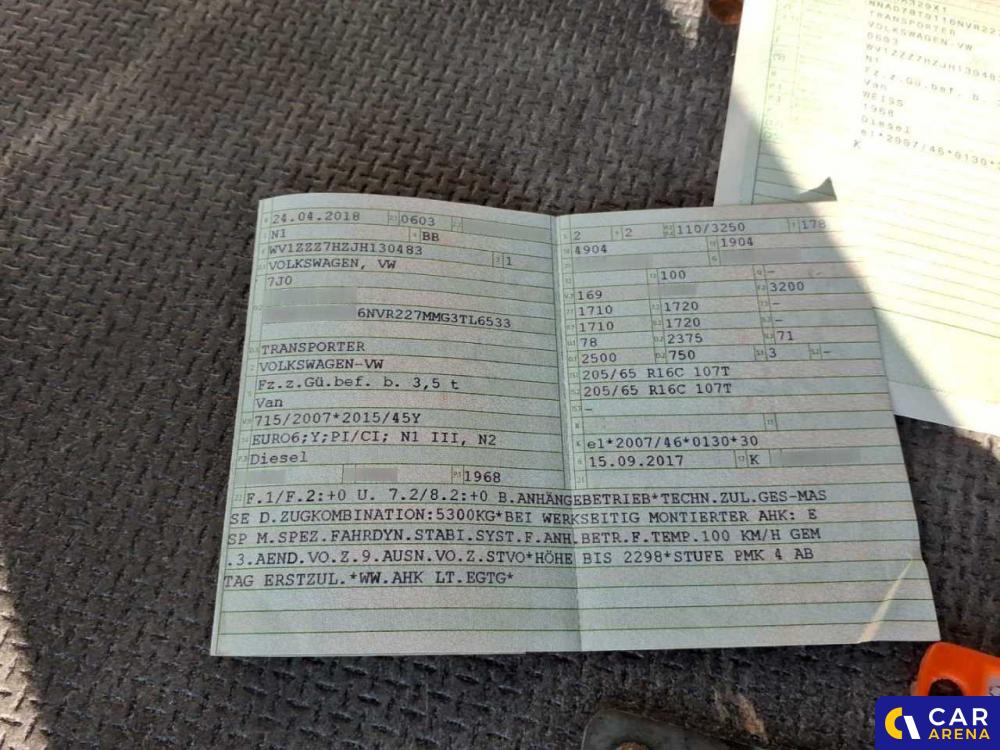 24.04.2018 0603 2 2 110/3250 178
N1 BB 4904 1904
WV1ZZZ7HZJH130483
VOLKSWAGEN, VW 1 100 -
7J0 169 3200
1710 1720 -
6NVR227MMG3TL6533 1710 1720 -
78 2375 71
TRANSPORTER 2500 750 3 -
VOLKSWAGEN-VW 205/65 R16C 107T
Fz.z.Gü.bef. b. 3,5 t 205/65 R16C 107T
Van -
715/2007*2015/45Y
EURO6;Y;PI/CI; N1 III, N2 e1*2007/46*0130*30
Diesel 15.09.2017 K
1968
F.1/F.2:+0 U. 7.2/8.2:+0 B.ANHÄNGEBETRIEB*TECHN.ZUL.GES-MAS
SE D.ZUGKOMBINATION:5300KG*BEI WERKSEITIG MONTIERTER AHK: E
SP M.SPEZ.FAHRDYN.STABI.SYST.F.ANH.BETR.F.TEMP.100 KM/H GEM
.3.AEND.VO.Z.9.AUSN.VO.Z.STVO*HÖHE BIS 2298*STUFE PMK 4 AB
TAG ERSTZUL.*WW.AHK LT.EGTG*
TRANSPORTER
VOLKSWAGEN-VW
0603
WV1ZZZ7HZJH130483
N1
Fz.z.Gü.bef. b.
Van
WEISS
1968
Diesel
e1*2007/46*0130*
K
CAR
ARENA